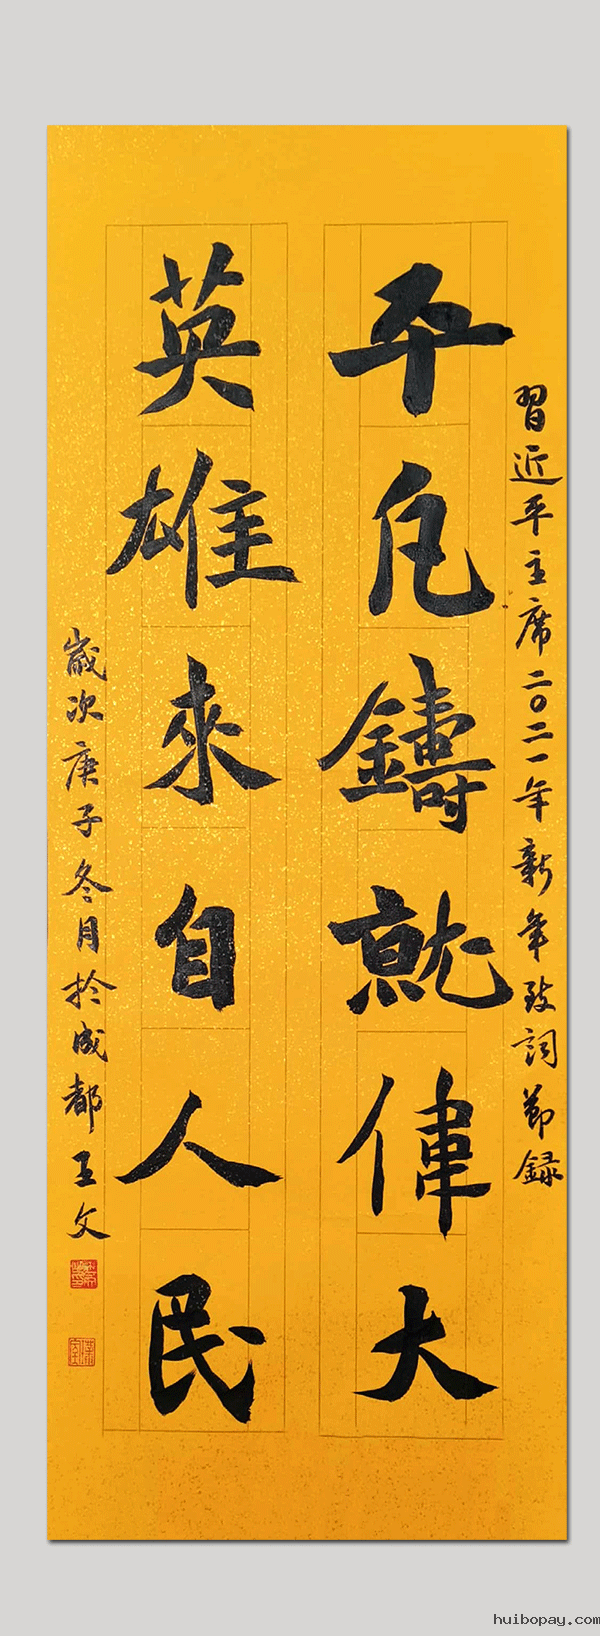 習近平主席二〇二一年新年致詞節録
平凡鑄就偉大
英雄來自人民
歲次庚子冬月於成都王文
huibopay.com